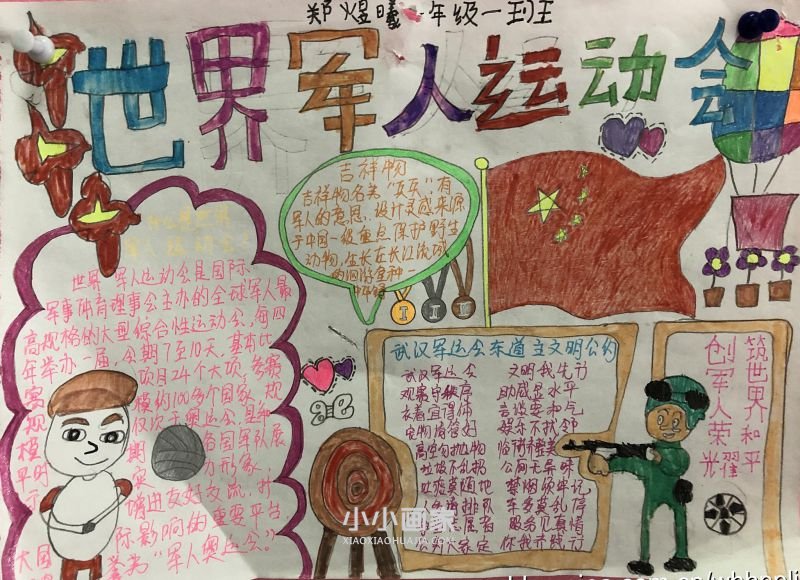 郑煜曦 一年级一班
世界军人运动会
吉祥物
吉祥物名为“兵兵”,有
军人的意思,设计灵感来源
于中国一级重点保护野生
动物,生长在长江流域
的洄游鱼种一
中华鲟
世界军人运动会是国际
军事体育理事会主办的全球军人最
高规格的大型综合性运动会,每四
年举办一届,会期7至10天,基本比
赛项目24个大项,参赛
规模约100多个国家,规
模仅次于奥运会,是和
平时期各国军队展
示
增进友好交流,扩
大国际影响的重要平台
誉为“军人奥运会。”
武汉军运会东道主文明公约
武汉军运会 文明我先行
观赛守秩序 助威显水平
衣着宜得体 言谈要和气
宠物须管好 娱乐不扰邻
高空勿抛物
垃圾不乱扔 公厕无异味
吐痰莫随地 禁烟须牢记
排队 车多莫乱停
志愿者 服务见真情
你我齐践行
筑世界和平
创军人荣光耀
小小画家
XIAOXIAOHUAJIA.COM